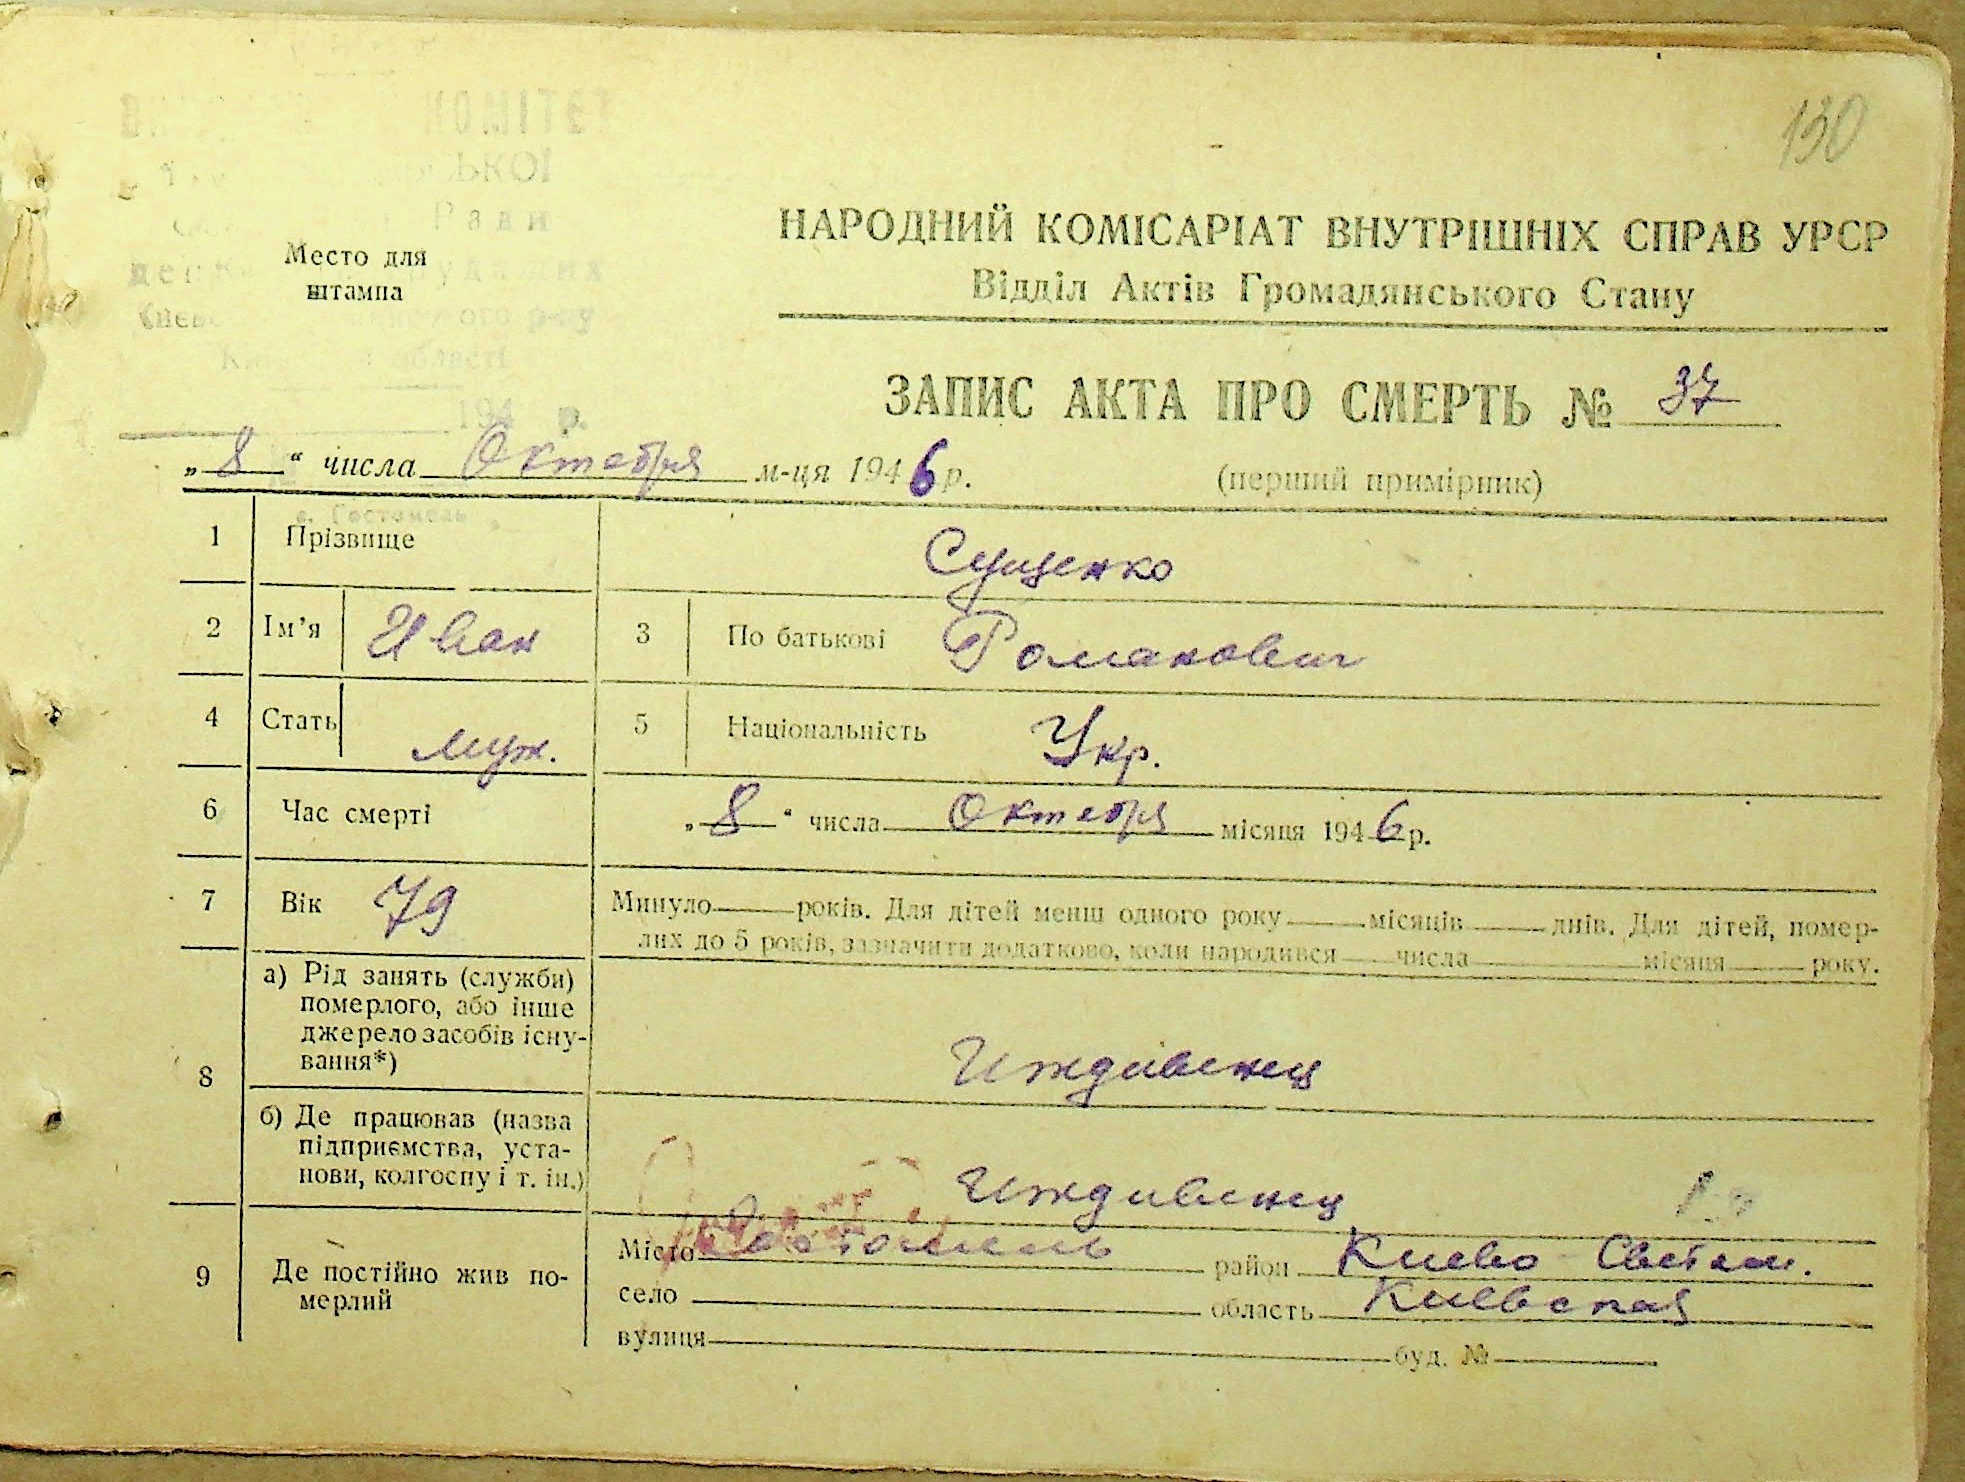 130
ЬКОЇ
Ради
Место для
штампа
області
194 р.
НАРОДНИЙ КОМІСАРІАТ ВНУТРІШНІХ СПРАВ УРСР
Відділ Актів Громадянського Стану
ЗАПИС АКТА ПРО СМЕРТЬ № 37
„8“ числа Октября м-ця 1946 р.
(перший примірник)
с. Гостомель
1 Прізвище Сущенко
2 Ім'я Иван 3 По батькові Романович
4 Стать муж. 5 Національність Укр.
6 Час смерті „8“ числа Октября місяця 1946 р.
7 Вік 79 Минуло років. Для дітей менш одного року місяців днів. Для дітей, помер-
лих до 5 років, зазначити додатково, коли народився числа місяця року.
8 а) Рід занять (служби)
померлого, або інше
джерело засобів існу-
вання*)
Иждивенец
б) Де працював (назва
підприємства, уста-
нови, колгоспу і т. ін.)
Иждивенец
9 Де постійно жив по-
мерлий
Місто Гостомель район Киево Святош.
село область Киевская
вулиця буд. №